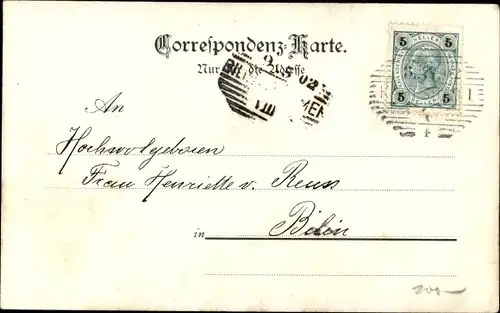 Correspondenz-Karte.
Nur für die Adresse
5 HELLER 5
5 HELLER 5
02
An
Hochwolgeboren
Frau Henriette v. Reuss
in Bilin
200-